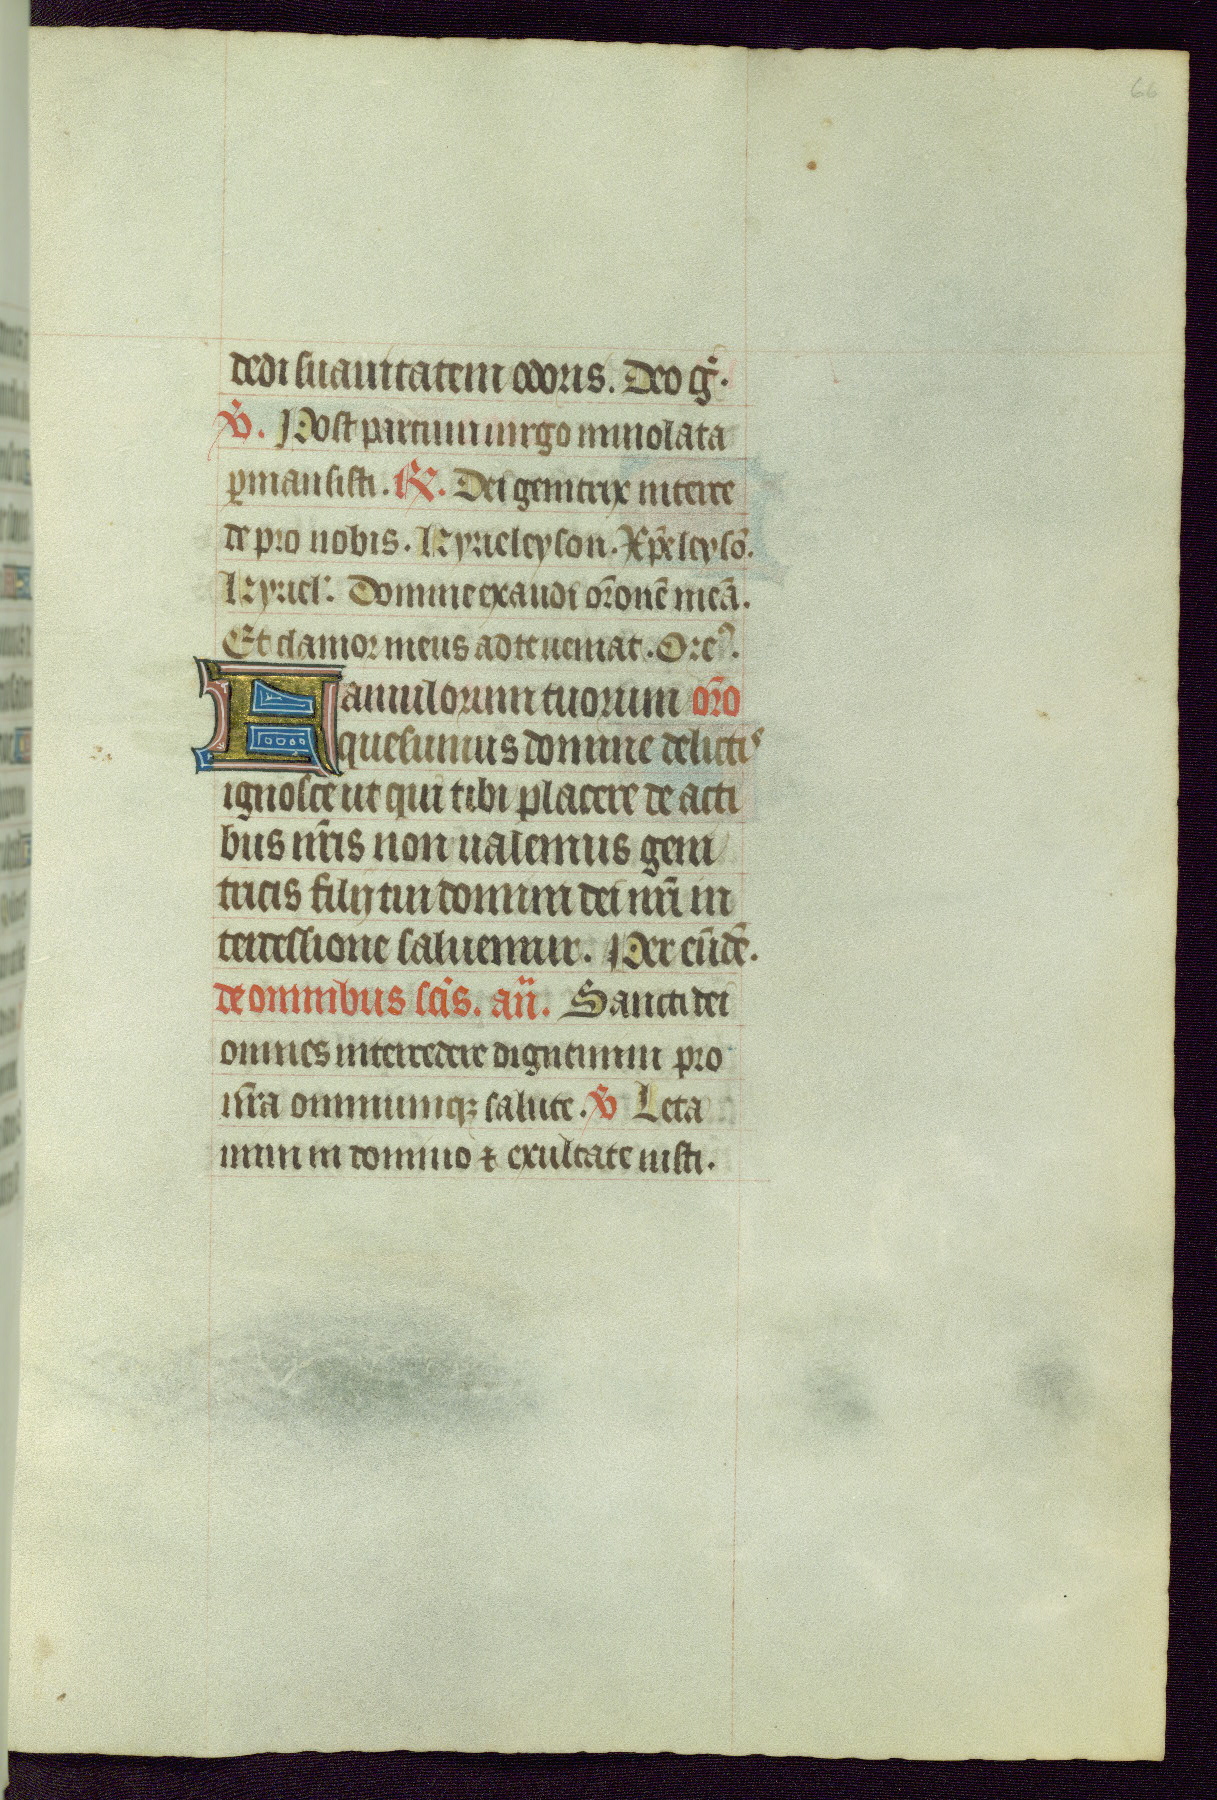 66
dedi suauitatem odoris. Deo gr̄.
V̄. Post partum uirgo inuiolata
ꝑmansisti. R̄. Dei genitrix interce
de pro nobis. Kyrieleyson. Xp̄eleysō.
Kyriel'. Domine exaudi or̄onē meā.
Et clamor meus ad te ueniat. Orēꝰ.
Famulorum tuorum or̄o
quesumus domine delictis
ignosce ut qui tibi placere de acti
bus nr̄is non ualemus geni
tricis filij tui domini dei nr̄i in
tercessione saluemur. Per eūdē.
de omnibus scīs. añ. Sancti dei
omnes intercedere dignemini pro
nr̄a omniumqꝫ salute. V̄ Leta
mini in domino ⁊ exultate iusti.